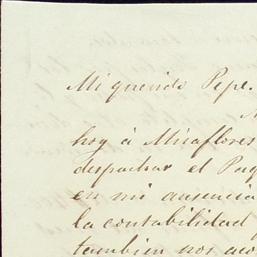 Mi querido Pepe.
hoy á Miraflores
despachar el Paq
en mi ausencia
la contabilidad
tambien nos aco